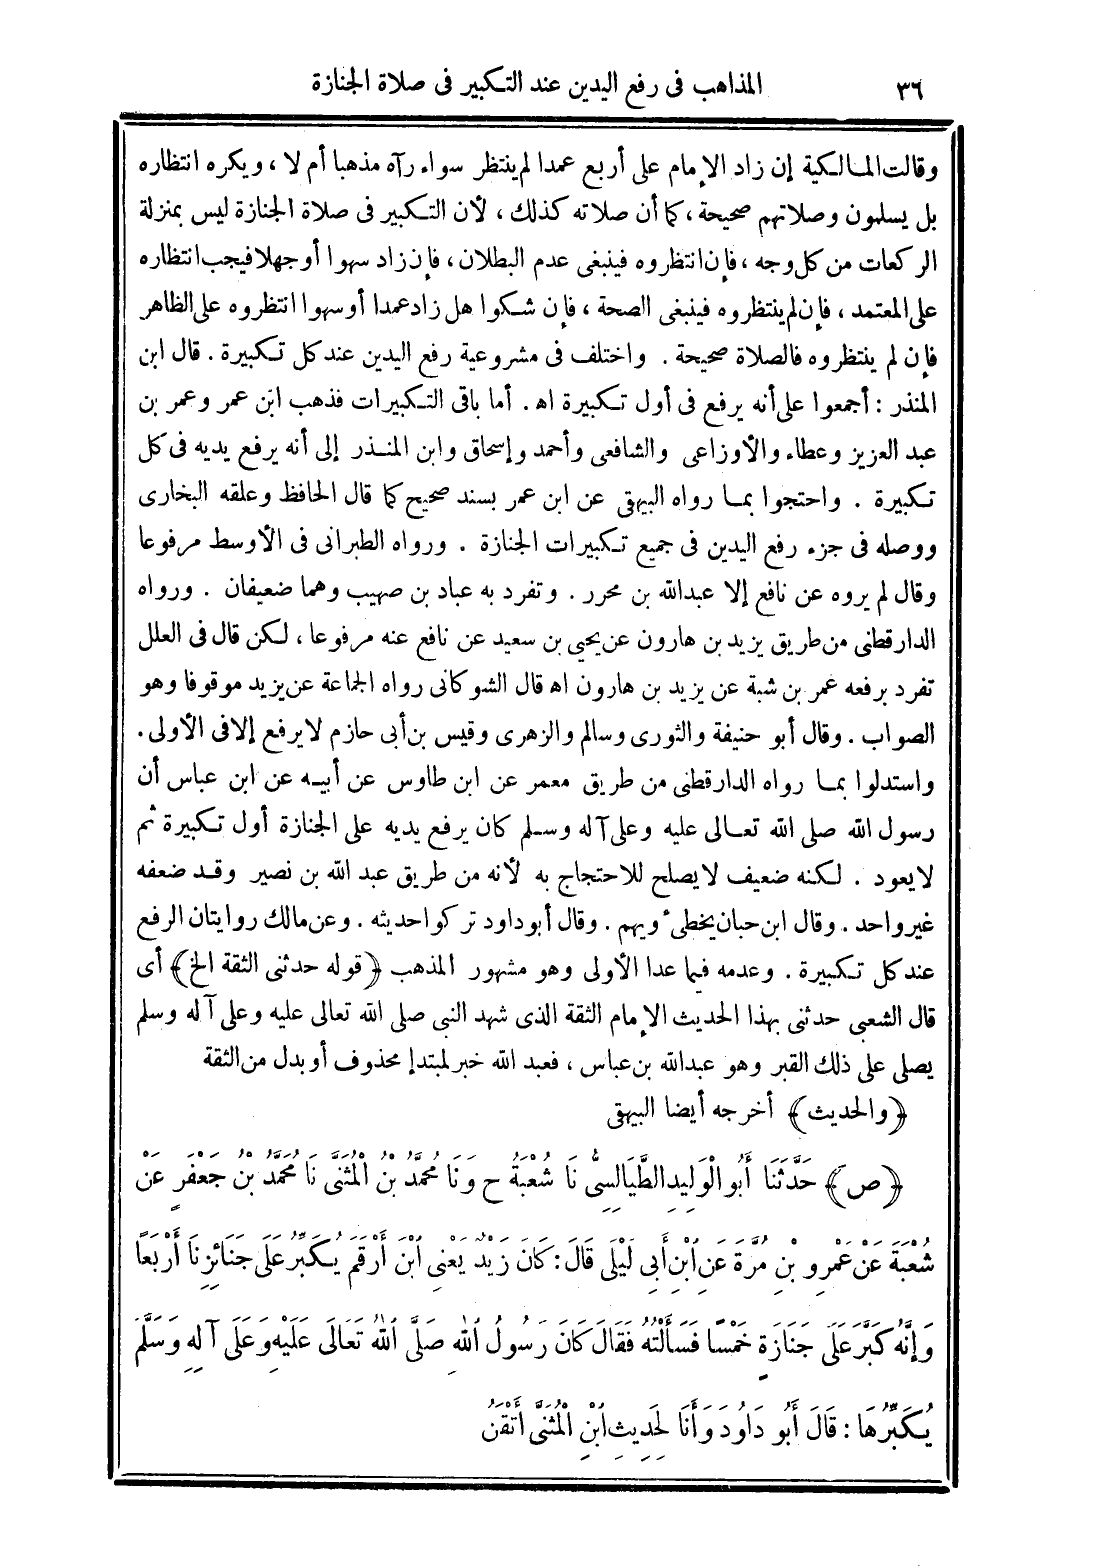 ٣٦ المذاهب فى رفع اليدين عند التكبير فى صلاة الجنازة
وقالت المالكية إن زاد الإمام على أربع عمدا لم ينتظر سواء رآه مذهبا أم لا ، ويكره انتظاره
بل يسلمون وصلاتهم صحيحة ، كما أن صلاته كذلك ، لأن التكبير فى صلاة الجنازة ليس بمنزلة
الركعات من كل وجه ، فإن انتظروه فينبغى عدم البطلان ، فإن زاد سهوا أوجهلا فيجب انتظاره
على المعتمد ، فإن لم ينتظروه فينبغى الصحة ، فإن شكوا هل زاد عمدا أوسهوا انتظروه على الظاهر
فإن لم ينتظروه فالصلاة صحيحة . واختلف فى مشروعية رفع اليدين عند كل تكبيرة . قال ابن
المنذر : أجمعوا على أنه يرفع فى أول تكبيرة اهـ . أما باقى التكبيرات فذهب ابن عمر وعمر بن
عبد العزيز وعطاء والأوزاعى والشافعى وأحمد وإسحاق وابن المنذر إلى أنه يرفع يديه فى كل
تكبيرة . واحتجوا بما رواه البيهقى عن ابن عمر بسند صحيح كما قال الحافظ وعلقه البخارى
ووصله فى جزء رفع اليدين فى جميع تكبيرات الجنازة . ورواه الطبرانى فى الأوسط مرفوعا
وقال لم يروه عن نافع إلا عبدالله بن محرر . وتفرد به عباد بن صهيب وهما ضعيفان . ورواه
الدارقطنى من طريق يزيد بن هارون عن يحيى بن سعيد عن نافع عنه مرفوعا ، لكن قال فى العلل
تفرد برفعه عمر بن شبة عن يزيد بن هارون اهـ قال الشوكانى رواه الجماعة عن يزيد موقوفا وهو
الصواب . وقال أبو حنيفة والثورى وسالم والزهرى وقيس بن أبى حازم لا يرفع إلا فى الأولى .
واستدلوا بما رواه الدارقطنى من طريق معمر عن ابن طاوس عن أبيه عن ابن عباس أن
رسول الله صلى الله تعالى عليه وعلى آله وسلم كان يرفع يديه على الجنازة أول تكبيرة ثم
لا يعود . لكنه ضعيف لا يصلح للاحتجاج به لأنه من طريق عبد الله بن نصير وقد ضعفه
غير واحد . وقال ابن حبان يخطئ ويهم . وقال أبوداود تركوا حديثه . وعن مالك روايتان الرفع
عند كل تكبيرة . وعدمه فيما عدا الأولى وهو مشهور المذهب ﴿قوله حدثنى الثقة الخ﴾ أى
قال الشعبى حدثنى بهذا الحديث الإمام الثقة الذى شهد النبى صلى الله تعالى عليه وعلى آله وسلم
يصلى على ذلك القبر وهو عبدالله بن عباس ، فعبد الله خبر لمبتدإ محذوف أو بدل من الثقة
﴿والحديث﴾ أخرجه أيضا البيهقى
﴿ص﴾ حَدَّثَنَا أَبُو الْوَلِيدِ الطَّيَالِسِىُّ نَا شُعْبَةُ ح وَنَا مُحَمَّدُ بْنُ الْمُثَنَّى نَا مُحَمَّدُ بْنُ جَعْفَرٍ عَنْ
شُعْبَةَ عَنْ عَمْرِو بْنِ مُرَّةَ عَنِ ابْنِ أَبِى لَيْلَى قَالَ : كَانَ زَيْدٌ يَعْنِى ابْنَ أَرْقَمَ يُكَبِّرُ عَلَى جَنَائِزِنَا أَرْبَعًا
وَإِنَّهُ كَبَّرَ عَلَى جَنَازَةٍ خَمْسًا فَسَأَلْتُهُ فَقَالَ كَانَ رَسُولُ اللهِ صَلَّى اللهُ تَعَالَى عَلَيْهِ وَعَلَى آلِهِ وَسَلَّمَ
يُكَبِّرُهَا : قَالَ أَبُو دَاوُدَ وَأَنَا لِحَدِيثِ ابْنِ الْمُثَنَّى أَتْقَنُ